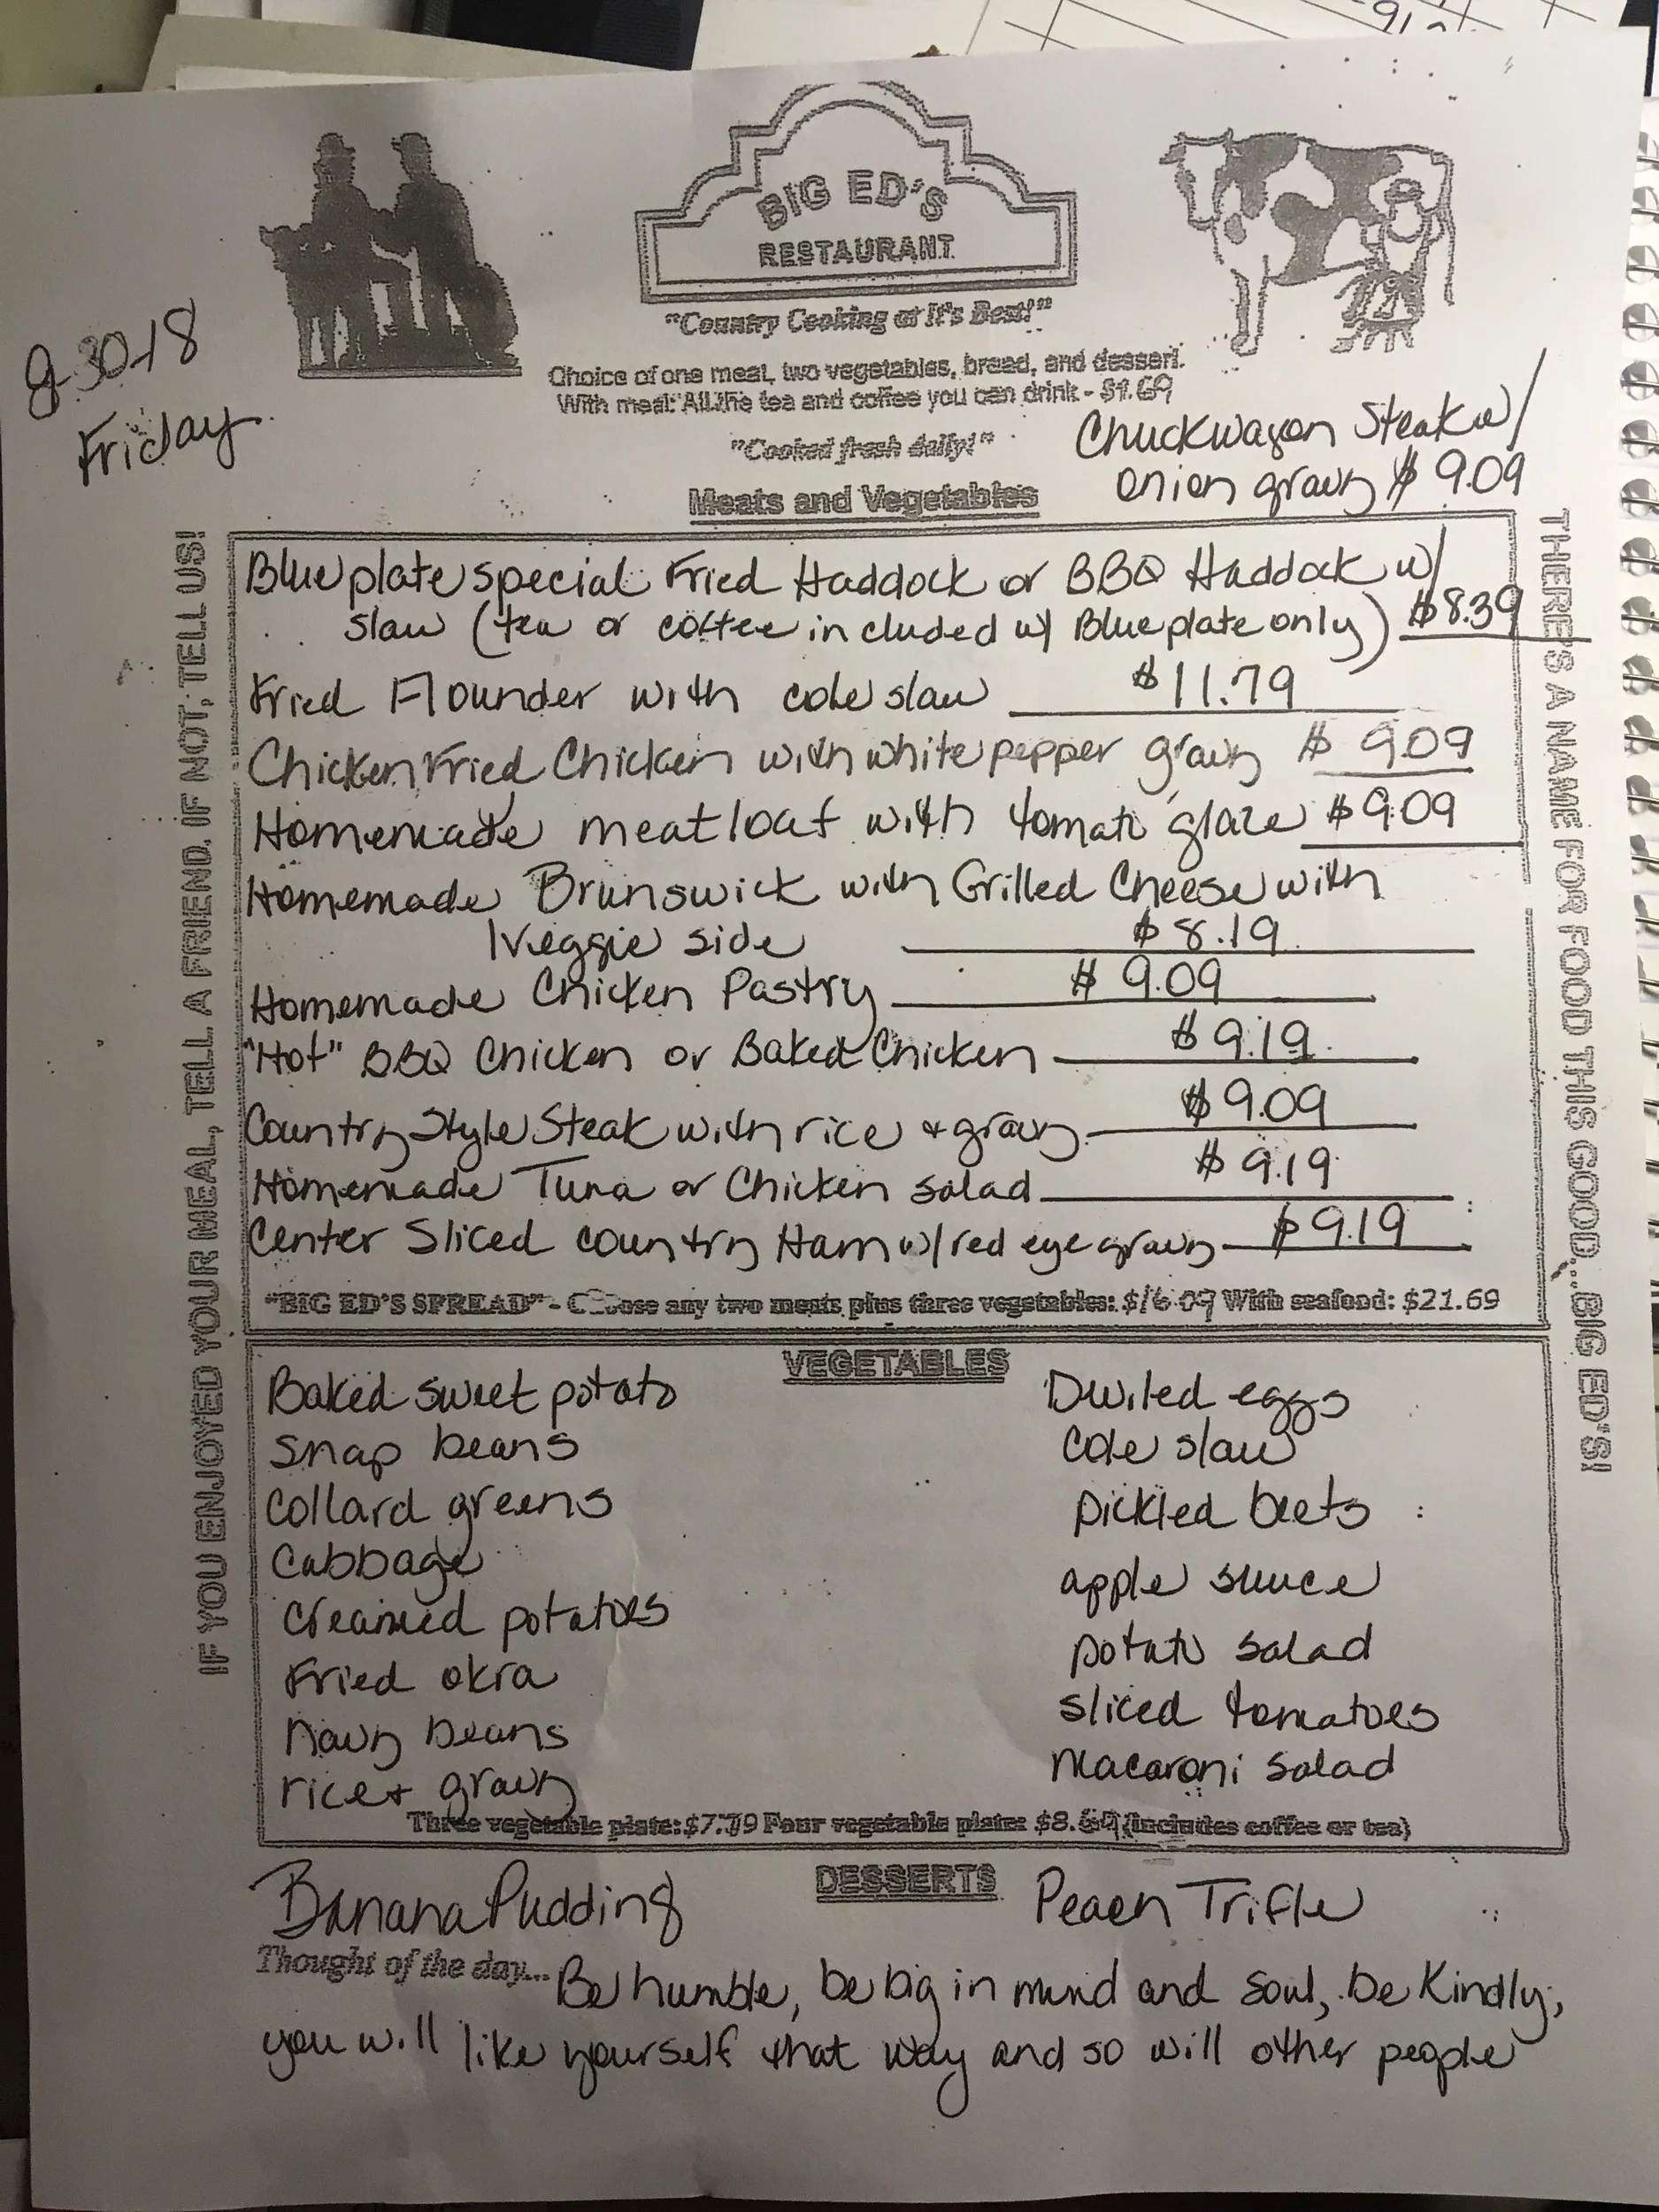 BIG ED'S
RESTAURANT
"Country Cooking at It's Best!"
8-30-18
Friday
Choice of one meat, two vegetables, bread, and dessert.
With meal: All the tea and coffee you can drink - $1.69
"Cooked fresh daily!"
Chuckwagon Steak w/
onion gravy $ 9.09
Meats and Vegetables
Blue plate special Fried Haddock or BBQ Haddock w/
slaw (tea or coffee included w/ Blue plate only) $8.39
Fried Flounder with cole slaw $11.79
Chicken Fried Chicken with white pepper gravy $ 9.09
Homemade meatloaf with tomato glaze $9.09
Homemade Brunswick with Grilled Cheese with
1 veggie side $8.19
Homemade Chicken Pastry $ 9.09
"Hot" BBQ Chicken or Baked Chicken $9.19
Country Style Steak with rice + gravy $9.09
Homemade Tuna or Chicken salad $9.19
Center Sliced country Ham w/ red eye gravy $9.19
"BIG ED'S SPREAD" - Choose any two meats plus three vegetables: $16.09 With seafood: $21.69
IF YOU ENJOYED YOUR MEAL, TELL A FRIEND. IF NOT, TELL US!
THERE'S A NAME FOR FOOD THIS GOOD...BIG ED'S!
VEGETABLES
Baked sweet potato
Snap beans
Collard greens
Cabbage
Creamed potatoes
Fried okra
Navy beans
rice + gravy
Deviled eggs
Cole slaw
pickled beets
apple sauce
potato salad
sliced tomatoes
macaroni salad
Three vegetable plate: $7.79 Four vegetable plate: $8.69 (includes coffee or tea)
DESSERTS
Banana Pudding
Peach Trifle
Thought of the day... Be humble, be big in mind and soul, be Kindly,
you will like yourself that way and so will other people